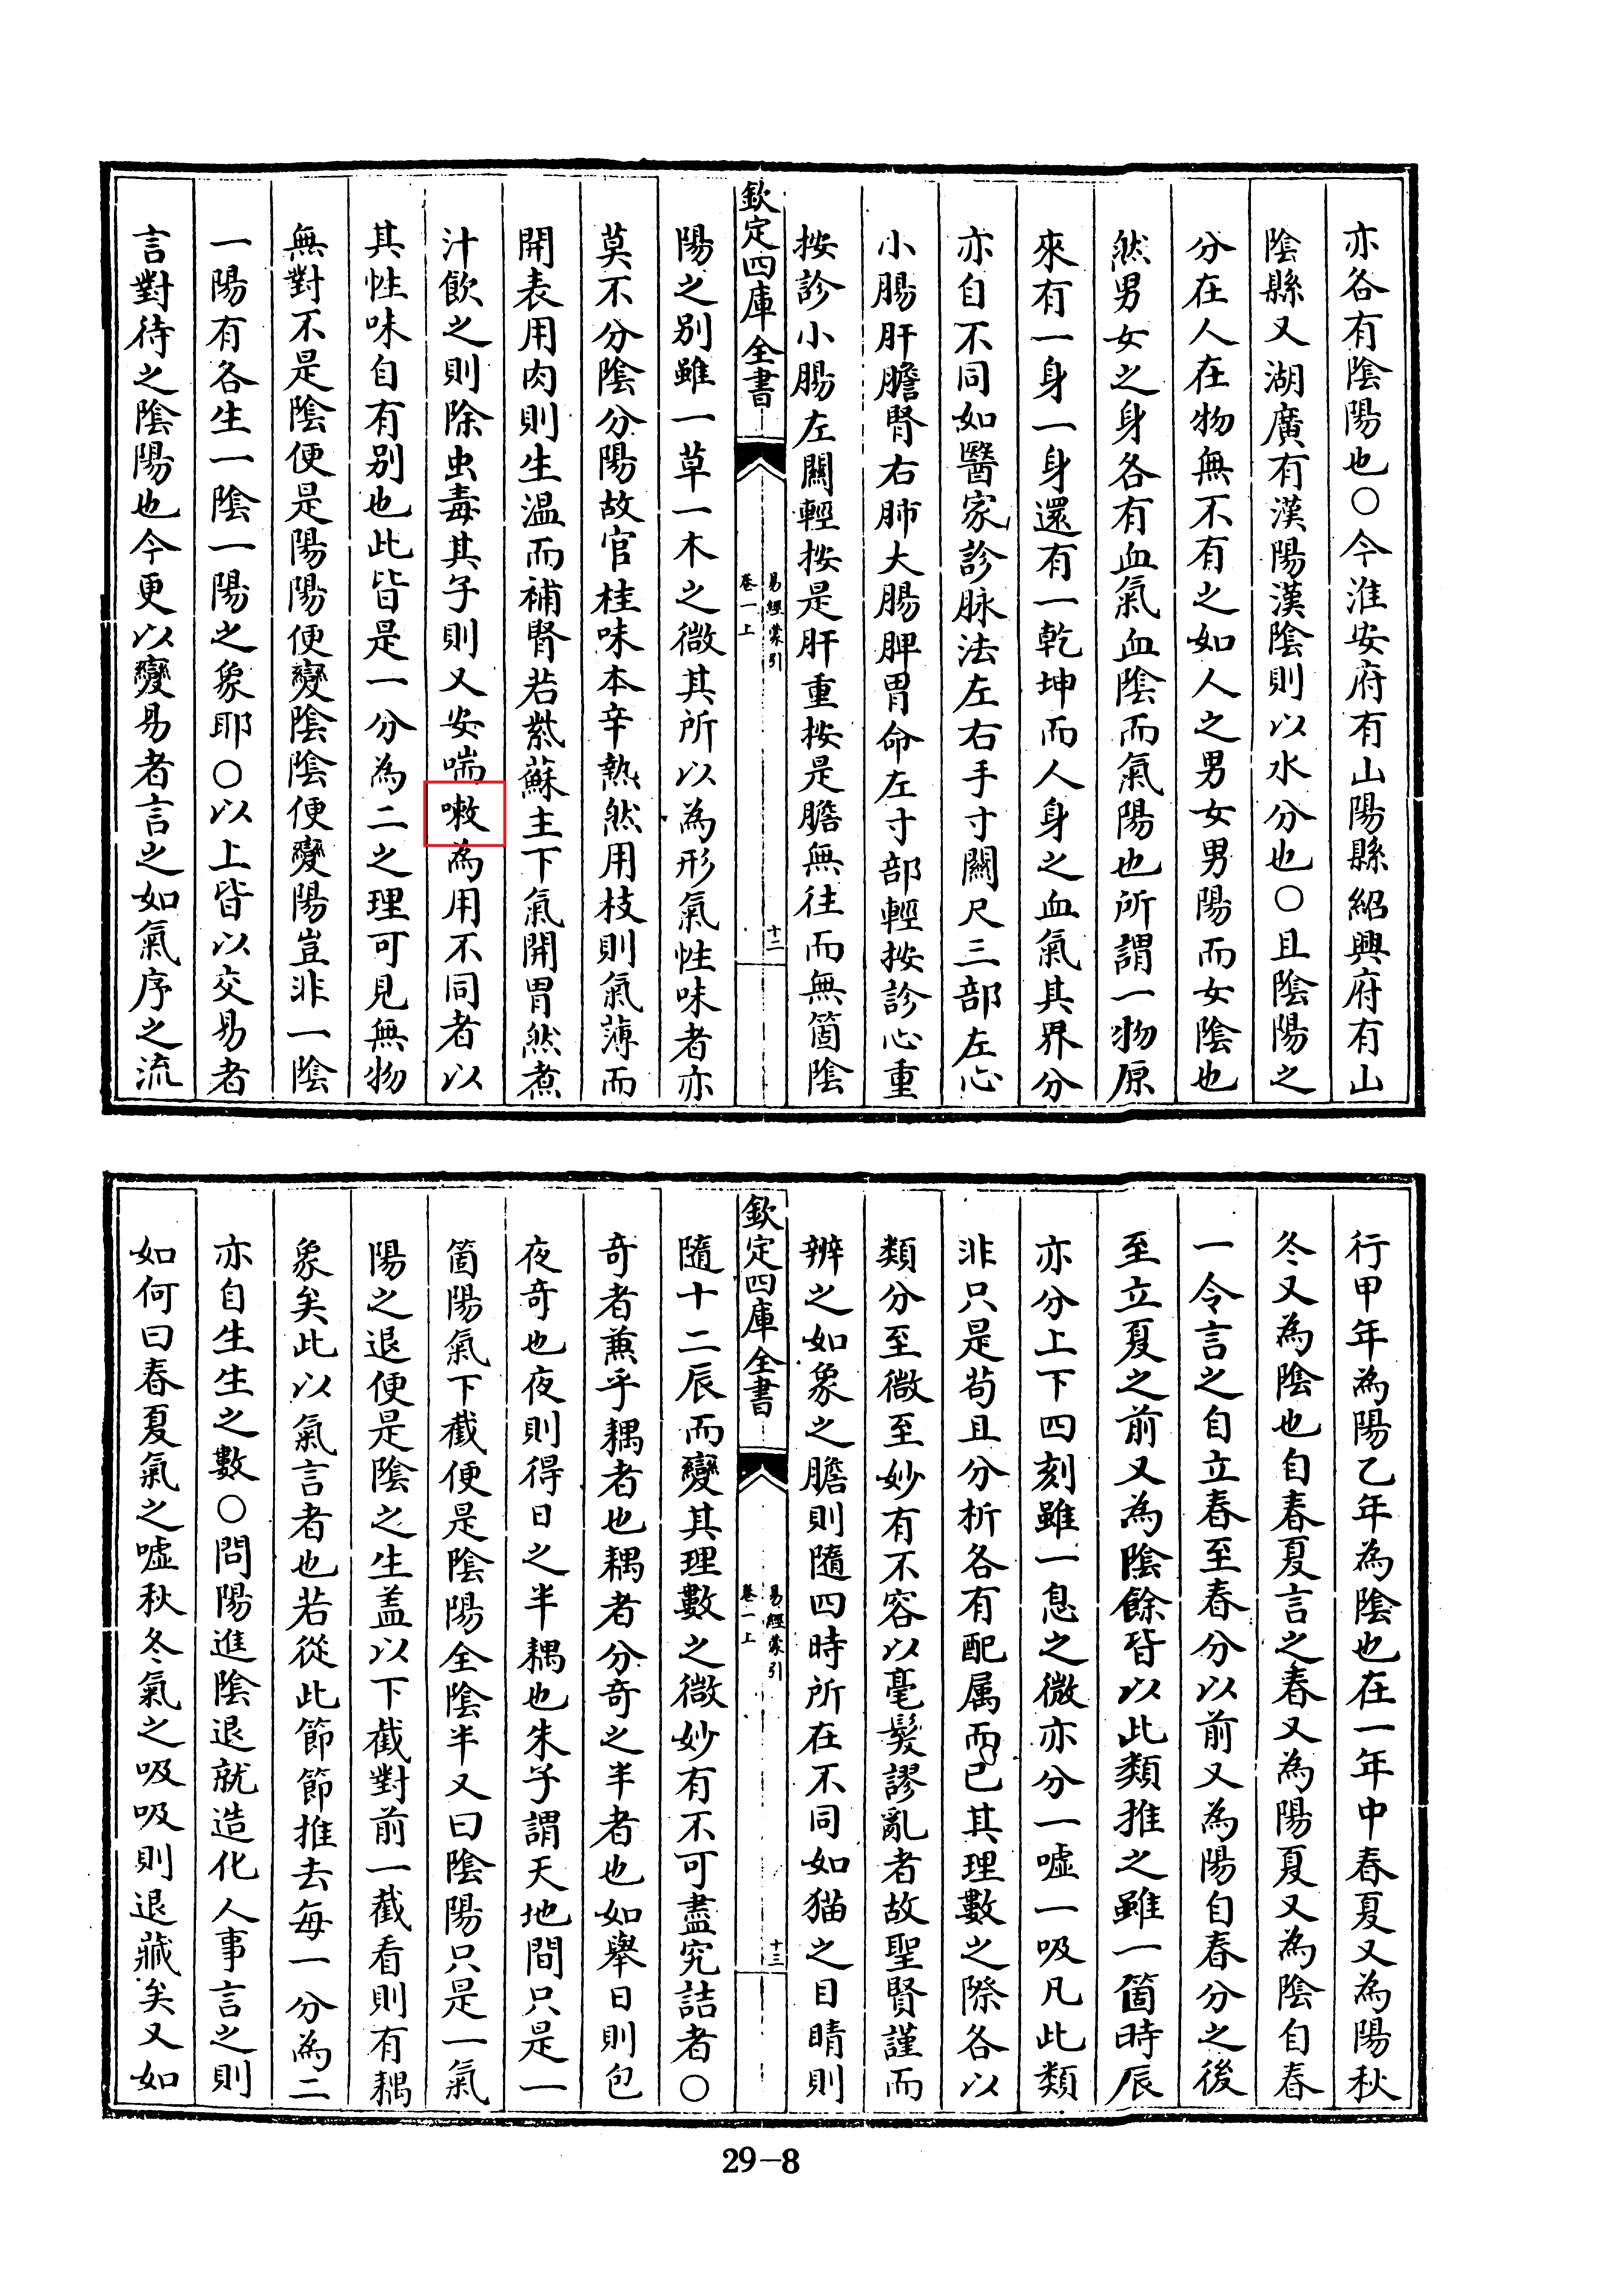 亦各有陰陽也○今淮安府有山陽縣紹興府有山
陰縣又湖廣有漢陽漢陰則以水分也○且陰陽之
分在人在物無不有之如人之男女男陽而女陰也
然男女之身各有血氣血陰而氣陽也所謂一物原
來有一身一身還有一乾坤而人身之血氣其界分
亦自不同如醫家診脉法左右手寸關尺三部左心
小腸肝膽腎右肺大腸脾胃命左寸部輕按診心重
按診小腸左關輕按是肝重按是膽無往而無箇陰
欽定四庫全書
易經蒙引
卷一上
十二
陽之别雖一草一木之微其所以為形氣性味者亦
莫不分陰分陽故官桂味本辛熱然用枝則氣薄而
開表用肉則生温而補腎若紫蘇主下氣開胃然煮
汁飲之則除虫毒其子則又安喘嗽為用不同者以
其性味自有别也此皆是一分為二之理可見無物
無對不是陰便是陽陽便變陰陰便變陽豈非一陰
一陽有各生一陰一陽之象耶○以上皆以交易者
言對待之陰陽也今更以變易者言之如氣序之流
行甲年為陽乙年為陰也在一年中春夏又為陽秋
冬又為陰也自春夏言之春又為陽夏又為陰自春
一令言之自立春至春分以前又為陽自春分之後
至立夏之前又為陰餘皆以此類推之雖一箇時辰
亦分上下四刻雖一息之微亦分一噓一吸凡此類
非只是苟且分析各有配属而已其理數之際各以
類分至微至妙有不容以毫髮謬亂者故聖賢謹而
辨之如象之膽則隨四時所在不同如猫之目睛則
欽定四庫全書
易經蒙引
卷一上
十三
隨十二辰而變其理數之微妙有不可盡究詰者○
奇者兼乎耦者也耦者分奇之半者也如舉日則包
夜奇也夜則得日之半耦也朱子謂天地間只是一
箇陽氣下截便是陰陽全陰半又曰陰陽只是一氣
陽之退便是陰之生盖以下截對前一截看則有耦
象矣此以氣言者也若從此節節推去每一分為二
亦自生生之數○問陽進陰退就造化人事言之則
如何曰春夏氣之噓秋冬氣之吸吸則退藏矣又如
29-8